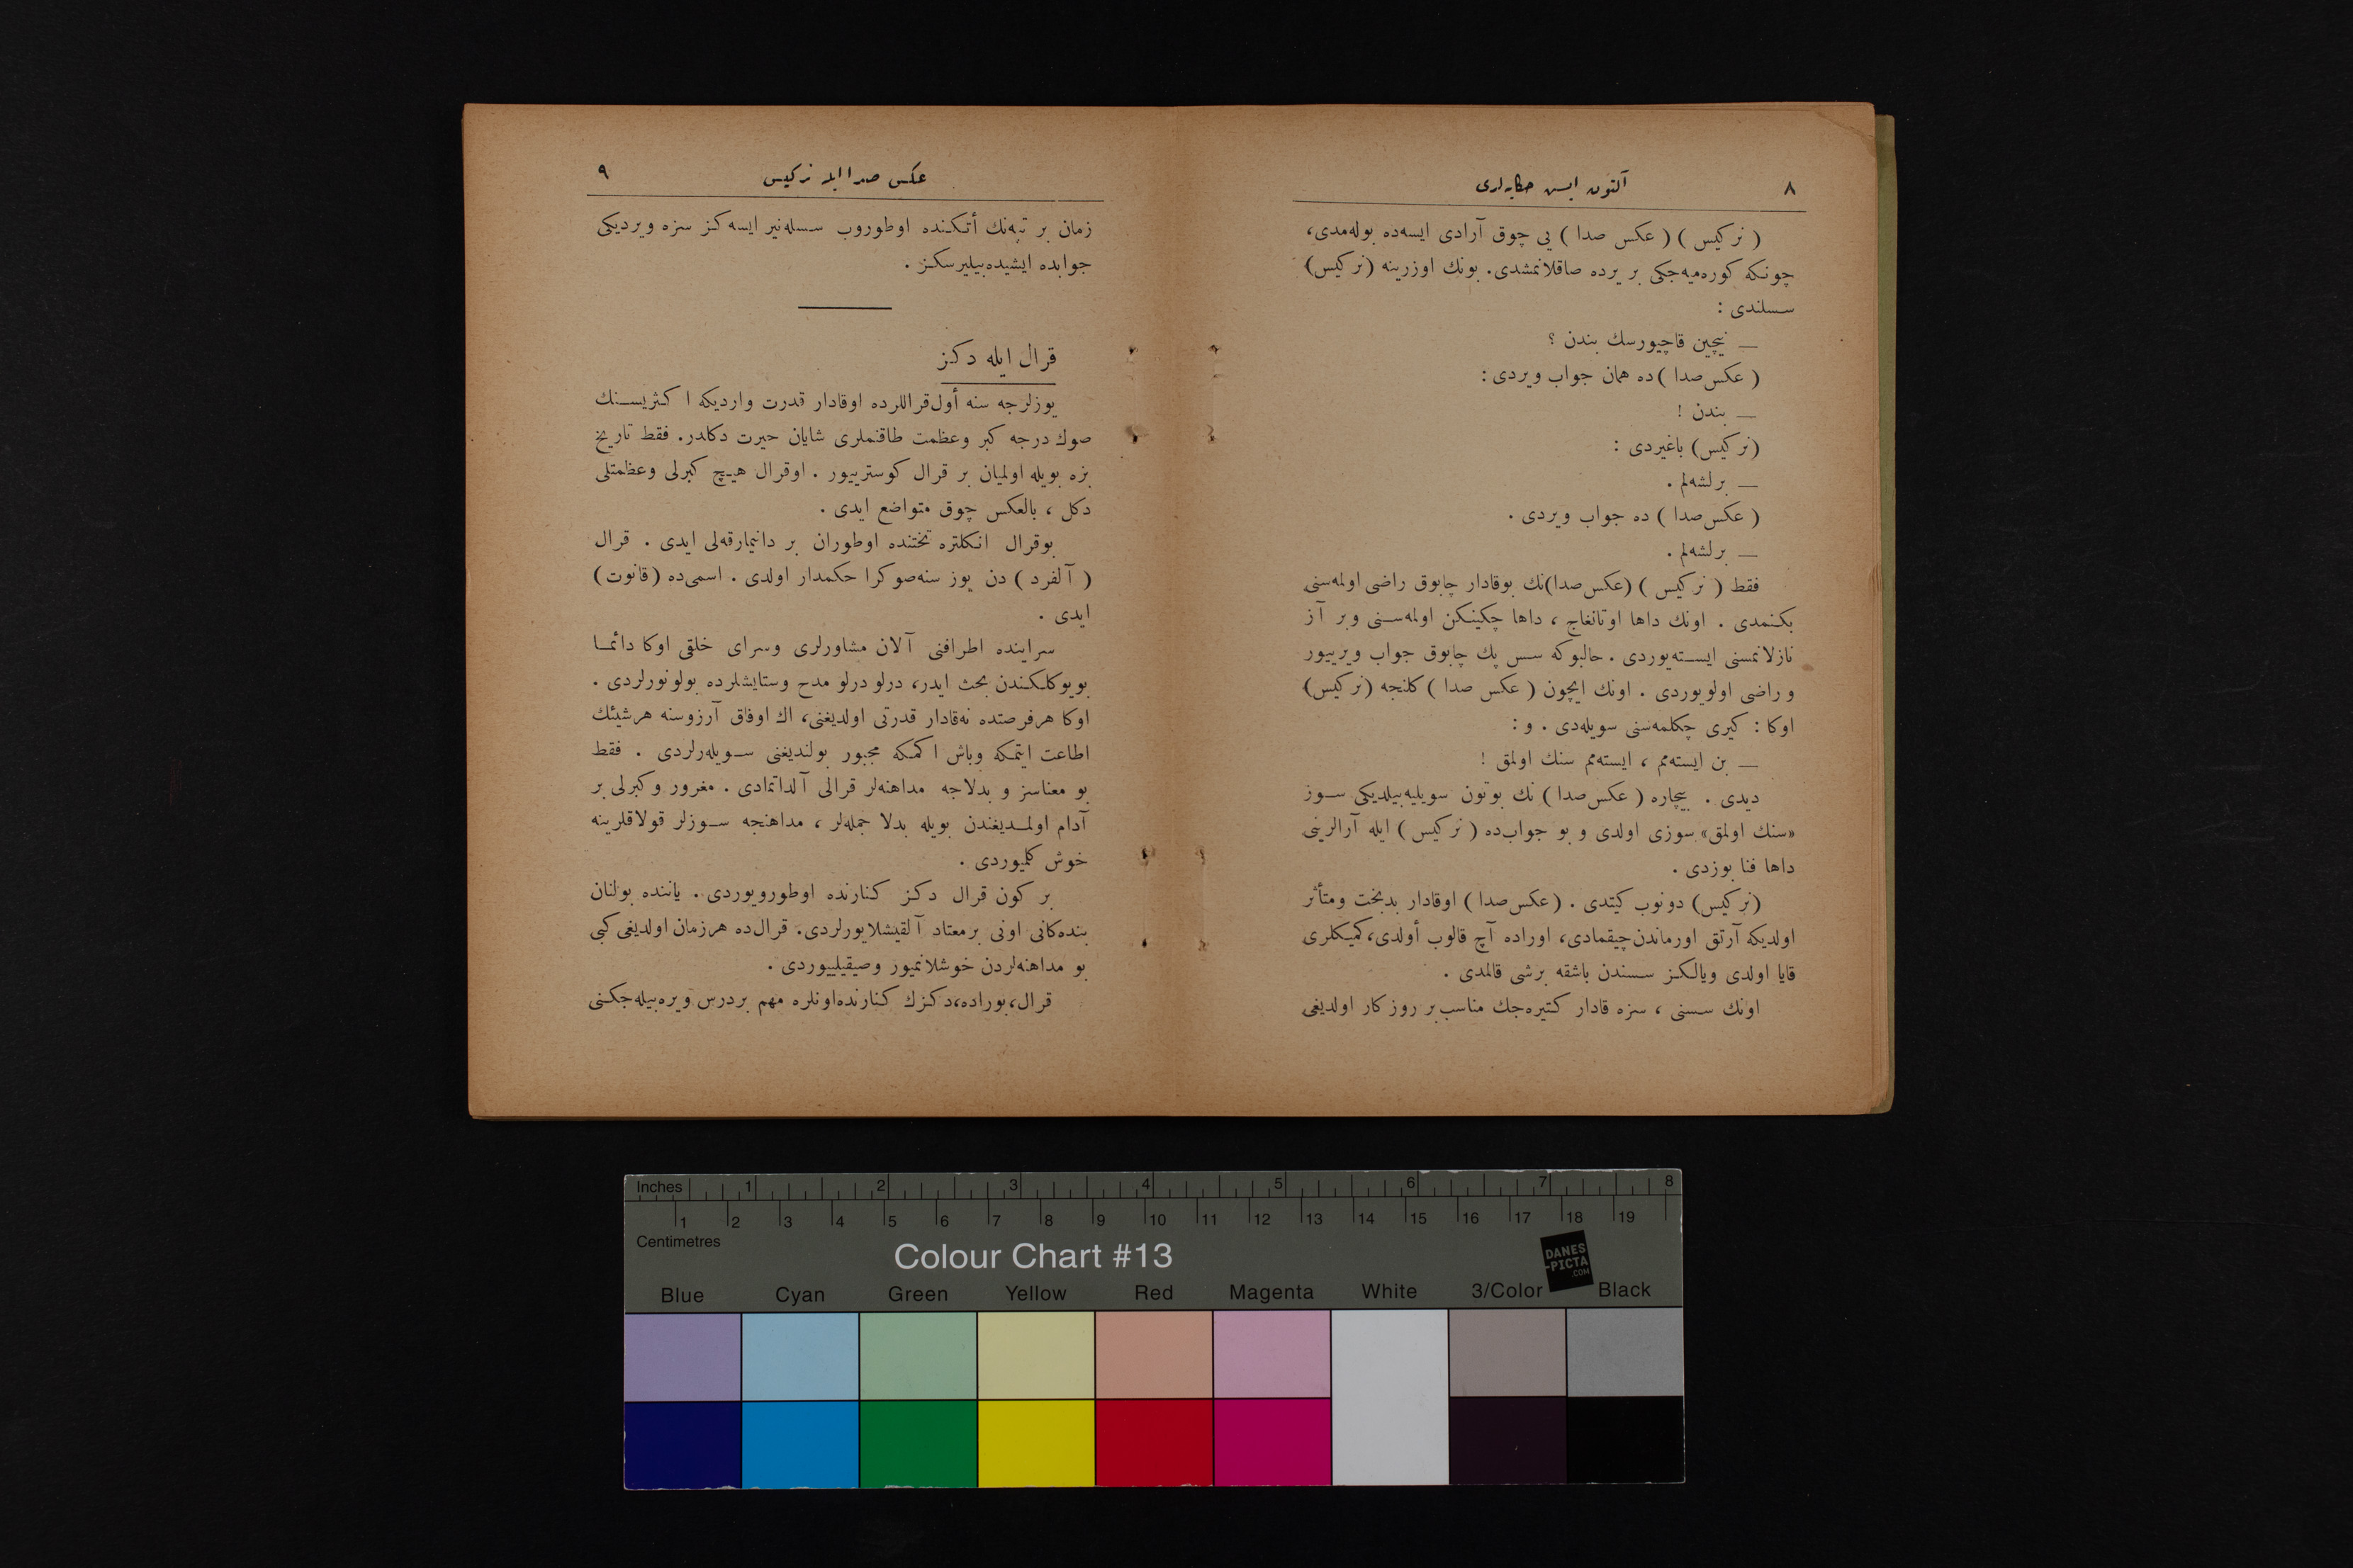 ٨
آلتون ایسن حكایه‌لری
( نركیس ) ( عكس صدا ) یی چوق آرادی ایسه‌ده بوله‌مدی،
چونكه كوره‌میه‌جكی بر یرده صاقلانمشدی. بونك اوزرینه (نركیس)
سسلندی :
— نیچین قاچیورسك بندن ؟
( عكس‌صدا ) ده همان جواب ویردی :
— بندن !
(نركیس) باغیردی :
— برلشه‌لم .
( عكس‌صدا ) ده جواب ویردی .
— برلشه‌لم .
فقط ( نركیس ) (عكس‌صدا)نك بوقادار چابوق راضی اولمه‌سنی
بكنمدی . اونك داها اوتانغاج ، داها چكینكن اولمه‌سنی وبر آز
نازلانمسنی ایسته‌یوردی . حالبوكه سس پك چابوق جواب ویرییور
و راضی اولویوردی . اونك ایچون ( عكس صدا ) كلنجه (نركیس)
اوكا : كیری چكلمه‌سنی سویله‌دی . و :
— بن ایسته‌مم ، ایسته‌مم سنك اولمق !
دیدی . بیچاره ( عكس‌صدا ) نك بوتون سویلیه‌بیلدیكی سوز
«سنك اولمق» سوزی اولدی و بو جواب‌ده ( نركیس ) ایله آرالرینی
داها فنا بوزدی .
(نركیس) دونوب كیتدی . (عكس‌صدا ) اوقادار بدبخت ومتأثر
اولدیكه آرتق اورماندن‌چیقمادی، اوراده آچ قالوب أولدی، كمیكلری
قایا اولدی ویالكز سسندن باشقه برشی قالمدی .
اونك سسنی ، سزه قادار كتیره‌جك مناسب‌بر روزكار اولدیغی
عكس صدا ایله نركیس
٩
زمان بر تپه‌نك أتكنده اوطوروب سسله‌نیر ایسه‌كز سزه ویردیكی
جوابده ایشیده‌بیلیرسكز .
قرال ایله دكز
یوزلرجه سنه أول‌قراللرده اوقادار قدرت واردیكه اكثریسنك
صوك درجه كبر وعظمت طاقنملری شایان حیرت دكلدر. فقط تاریخ
بزه بویله اولمیان بر قرال كوستریيور . اوقرال هیچ كبرلی وعظمتلی
دكل ، بالعكس چوق متواضع ایدی .
بوقرال انكلتره تختنده اوطوران بر دانیمارقه‌لی ایدی . قرال
( آلفرد ) دن یوز سنه‌صوكرا حكمدار اولدی . اسمی‌ده (قانوت)
ایدی .
سراینده اطرافنی آلان مشاورلری وسرای خلقی اوكا دائما
بویوكلكندن بحث ایدر، درلو درلو مدح وستایشلرده بولونورلردی .
اوكا هرفرصتده نه‌قادار قدرتی اولدیغنی، اك اوفاق آرزوسنه هرشیئك
اطاعت ایتمكه وباش اكمكه مجبور بولندیغنی سویله‌رلردی . فقط
بو معناسز و بدلاجه مداهنه‌لر قرالی آلداتمادی . مغرور وكبرلی بر
آدام اولمدیغندن بویله بدلا جمله‌لر ، مداهنجه سوزلر قولاقلرینه
خوش كلمیوردی .
بر كون قرال دكز كنارنده اوطورویوردی . یاننده بولنان
بنده‌كانی اونی برمعتاد آلقیشلایورلردی. قرال‌ده هرزمان اولدیغی كبی
بو مداهنه‌لردن خوشلانمیور وصیقیلییوردی .
قرال، بوراده، دكزك كنارنده‌اونلره مهم بردرس ویره‌بیله‌جكنی
Inches 1 2 3 4 5 6 7 8
1 2 3 4 5 6 7 8 9 10 11 12 13 14 15 16 17 18 19
Centimetres
Colour Chart #13
DANES
-PICTA
.COM
Blue Cyan Green Yellow Red Magenta White 3/Color Black